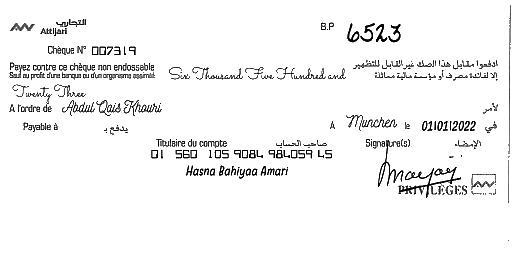 التجاري
Attijari
B.P 6523
Chèque N° 007319
Payez contre ce chèque non endossable
ادفعوا مقابل هذا الصك غير القابل للتظهير
Sauf au profit d'une banque ou d'un organisme assimilé
إلا لفائدة مصرف أو مؤسسة مالية مماثلة
Six Thousand Five Hundred and
Twenty Three
A l'ordre de Abdul Qais Khouri
لأمر
Payable à يدفع بـ
A Munchen le 01/01/2022 في
Titulaire du compte صاحب الحساب
Signature(s) الإمضاء
01 560 105 9084 984059 45
Hasna Bahiyaa Amari
PRIVILÈGES